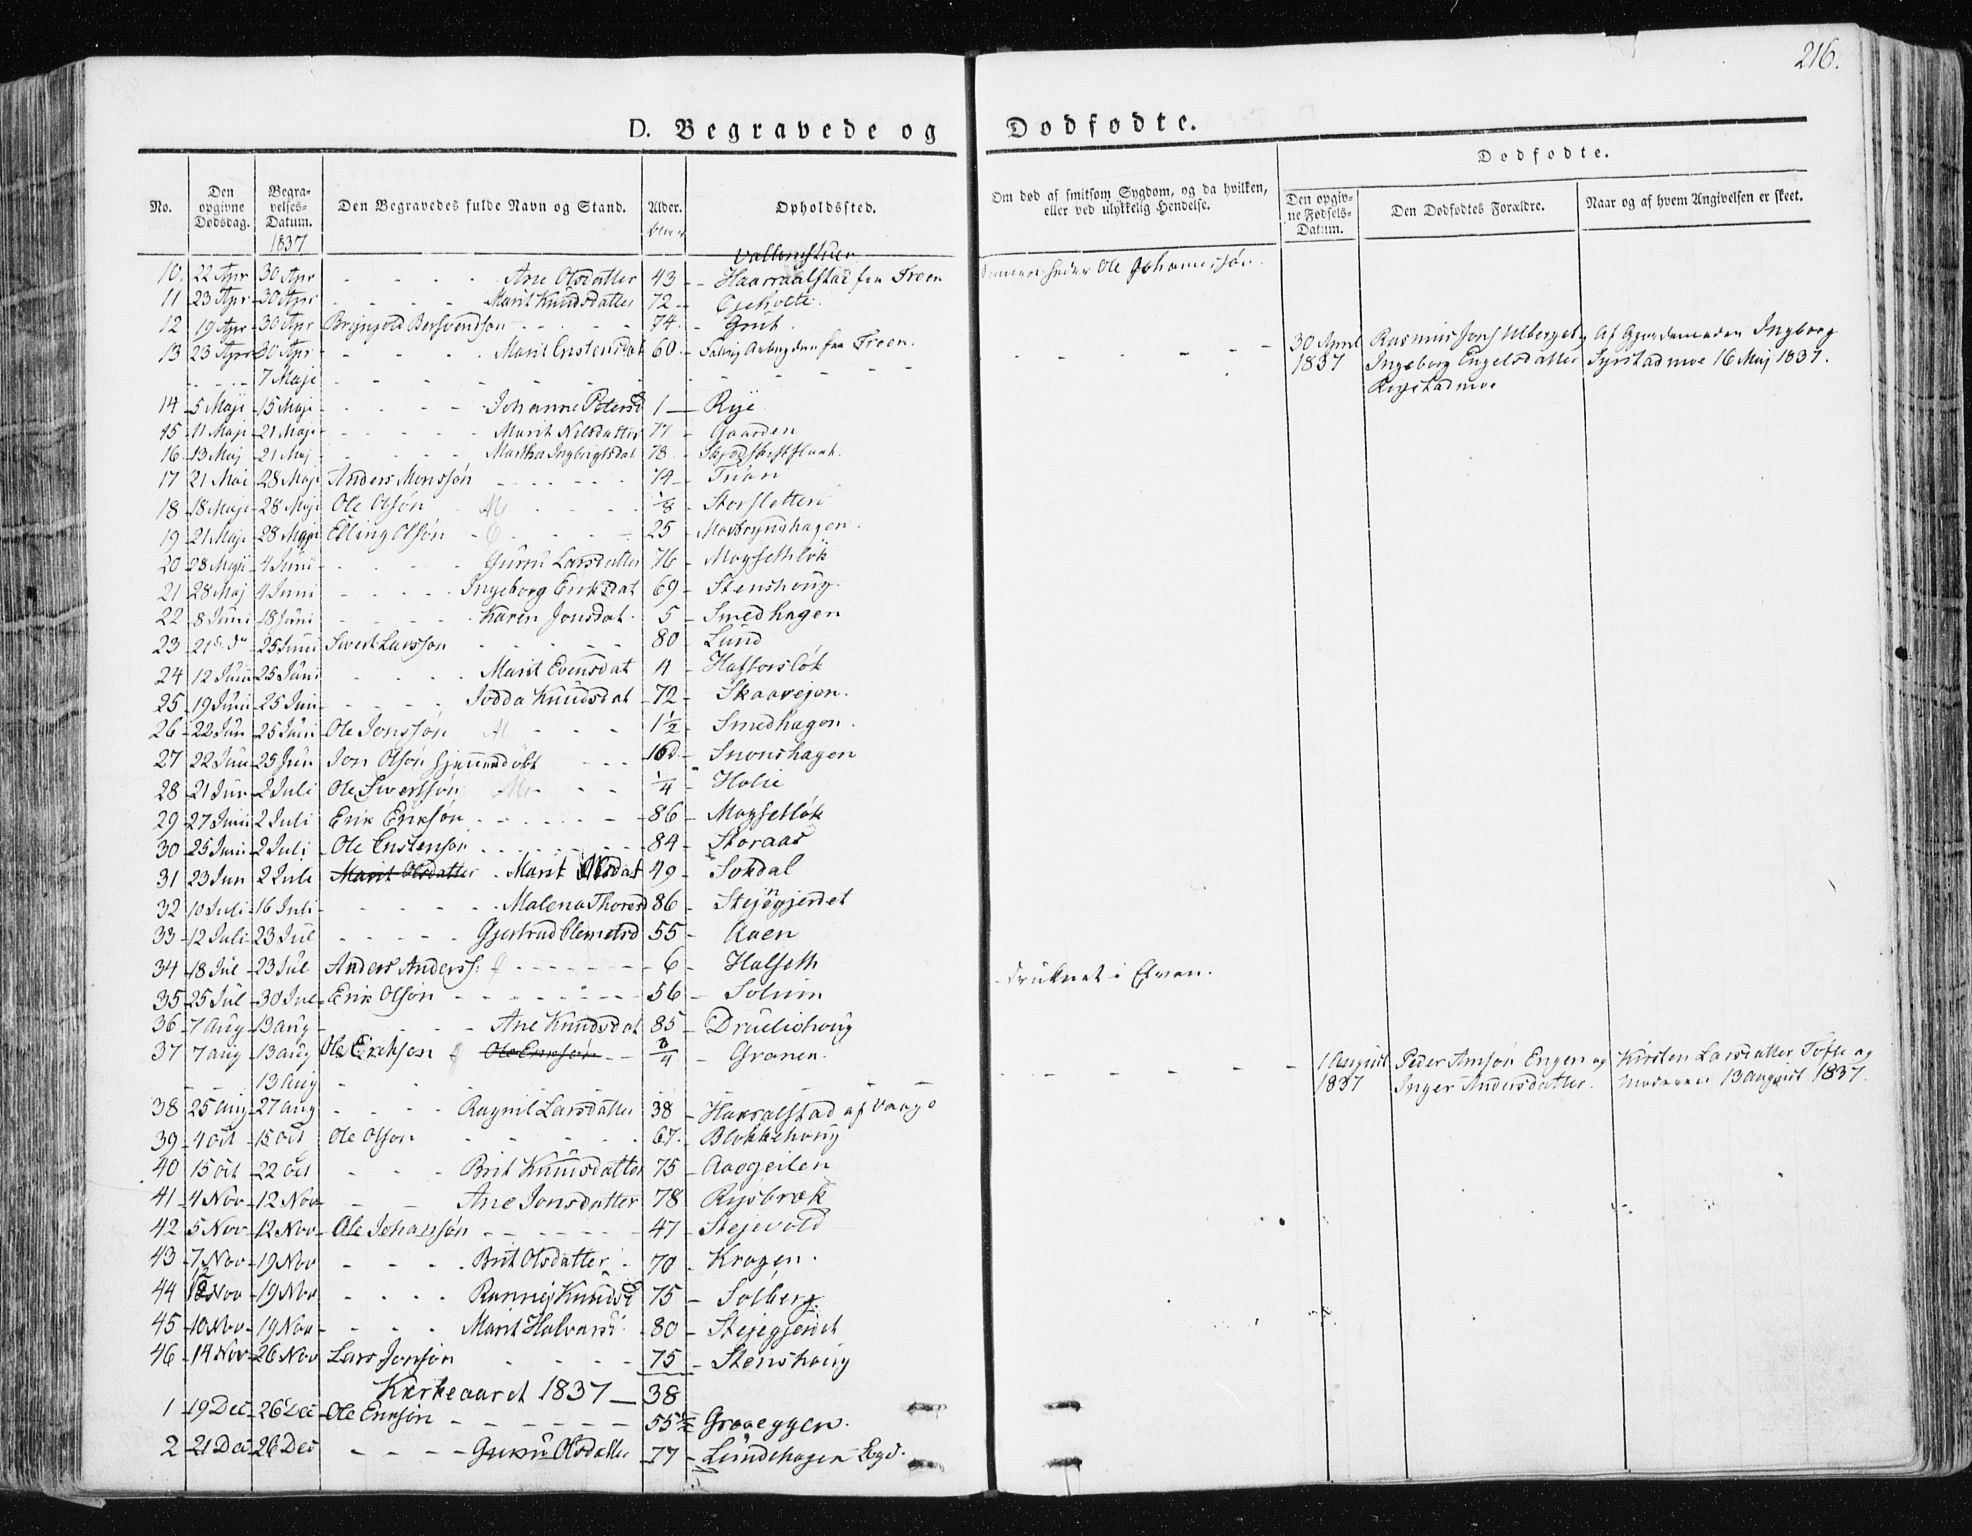 216.
D. Begravede og Dødfødte.
Dødfødte.
No. Den opgivne Dødsdag. Begravelses-Datum. Den Begravedes fulde Navn og Stand. Alder. Opholdssted. Om død af smitsom Sygdom, og da hvilken, eller ved ulykkelig Hendelse. Den opgivne Fødsels-Datum. Den Dødfødtes Forældre. Naar og af hvem Angivelsen er skeet.
1837
10. 22 Apr 30 Apr Ane Olsdatter 43 Haarraalstad fra Froen Ole Johannessøn.
11 23 Apr 30 Apr Marit Knudsdatter 72
12 19 Apr 30 Apr Brynjold Bersvendsøn 74 Grut.
13 23 Apr 30 Apr Marit Enstensdat 60 fra Froen.
7 Maji 30 April 1837 Rasmus Jons Ulberget og Ingeborg Engelsdatter Af Gjordemoderen Ingeborg 16 Maj 1837.
14 5 Maji 15 Maji Johanne Petersd 1 Rye
15 11 Maji 21 Maji Marit Nilsdatter 77 Gaarden
16 13 Maj 21 Maj Martha Ingbrigtsdat 78
17 21 Mai 28 Maj Anders Monssøn 14
18 18 Maji 28 Maji Ole Olsøn 1/8 Storsletten
19 21 Maji 28 Maji Elling Olsøn 25
20 28 Maji 4 Juni Guru Larsdatter 76
21 28 Maj 4 Juni Ingeborg Eriksdat 69 Stenshoug.
22 8 Juni 18 Juni Karen Jonsdat. 5 Smedhagen
23 21 d. 25 Juni Sivert Larssøn 80 Lund
24 12 Juni 25 Juni Marit Evensdat 4 Hafforsløk
25 19 Juni 25 Jun Jodda Knudsdat 72 Skaarejen.
26 22 Jun 25 Juni Ole Jonssøn 1 1/2 Smedhagen.
27 22 Jun 25 Jun Jon Olsøn hjemmedøbt 16 d. Snoushagen
28 21 Jun 2 Juli Ole Sivertsøn 1/4 Holie
29 27 Juni 2 Juli Erik Eriksøn 86
30 25 Juni 2 Juli Ole Enstensøn 84 Storaas
31 23 Jun 2 Juli Marit Olsdatter Marit Olsdat 49 Sordal
32 10 Juli 16 Juli Malena Thoresd 86 Stejegjerdet
33 12 Juli 23 Jul Gjertrud Clemetsd 55 Aaen
34 18 Jul 23 Jul Anders Anderss: 6 Halseth druknet i Elven.
35 25 Jul 30 Jul Erik Olsøn 56 Solum
36 7 Aug 13 Aug Ane Knudsdat 85
37 7 Aug 13 Aug Ole Erichsen Ole Eriksøn 3/4 Gronen.
13 Aug 1 August 1837 Peder Arnsøn Engen og Inger Andersdatter. Kirsten Larsdatter Tofte og Moderen 13 August 1837.
38 25 Aug 27 Aug Ragnil Larsdatter 38 Haaralstad af Vaage
39 4 Oct 15 Oct Ole Olson 67. Blokkehoug
40 15 Oct 22 Oct Brit Knudsdatter 75 Aasgeilen
41 4 Nov 12 Nov Ane Jonsdatter 78 Rysbræk
42 5 Nov 12 Nov Ole Johansøn 47 Stejevold
43 7 Nov 19 Nov Brit Olsdatter 70 Kragen.
44 12 Nov 19 Nov Rannej Knudsd 75 Solberg.
45 10 Nov 19 Nov Marit Halvarsd. 80 Stejegjerdet
46 14 Nov 26 Nov Lars Jonsøn 75 Stenshoug
Kirkeaaret 1837 38
1 19 Dec 26 Dec Ole Eriksøn 55 1/2 Graaeggen.
2 21 Dec 26 Dec Guru Olsdatter 77 Lundehagen